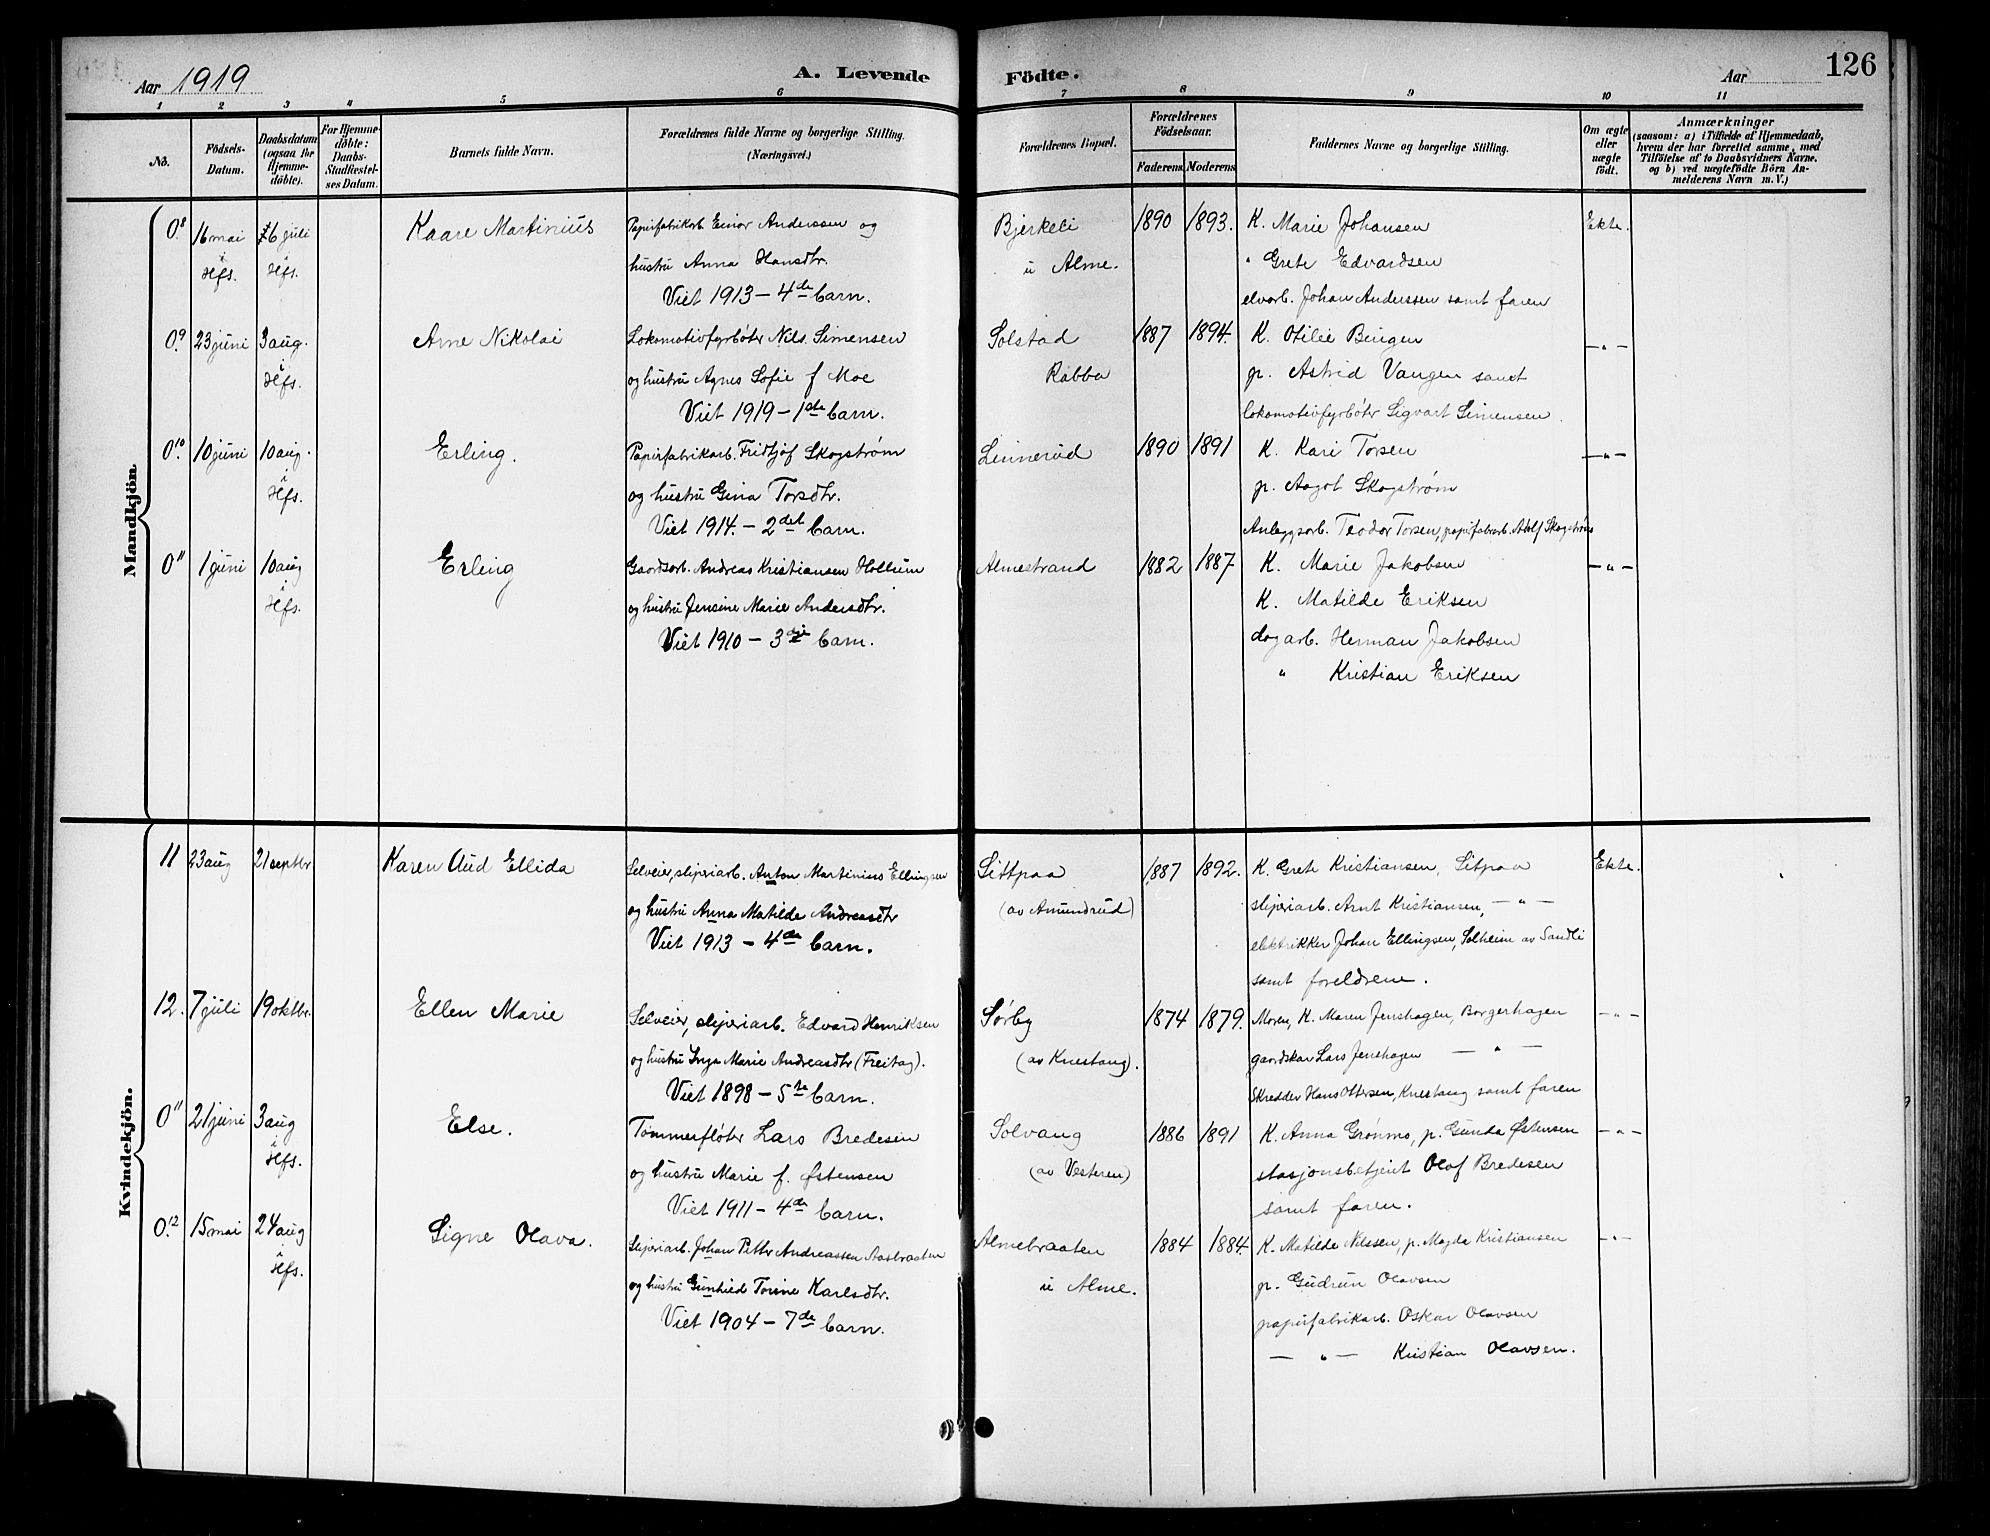 Aar 1919
A. Levende
Födte.
Aar
126
1 2 3 4 5 6 7 8 9 10 11
No.
Födsels-
Datum.
Daabsdatum
(ogsaa for
Hjemme-
döbte).
For Hjemme-
döbte:
Daabs-
Stadfæstel-
ses Datum.
Barnets fulde Navn.
Forældrenes fulde Navne og borgerlige Stilling.
(Næringsvei.)
Forældrenes Bopæl.
Forældrenes
Födselsaar.
Faderens Moderens
Faddernes Navne og borgerlige Stilling.
Om ægte
eller
uægte
födt.
Anmærkninger
(saasom: a) i Tilfælde af Hjemmedaab,
hvem der har forrettet samme, med
Tilföielse af to Daabsvidners Navne,
og b) ved uægtefödte Börn An-
melderens Navn m. V.)
Mandkjön
0.8 16 mai 6 juli Kaare Martinius Papirfabrikarb. Einar Anderssen og Bjerkeli 1890 1893. K. Marie Johansen Ekte.
i Hfs. i Hfs. hustru Anna Hansdtr. u Alme. " Grete Edvardsen
Viet 1913 - 4de barn. elvarb. Johan Anderssen samt faren
0.9 23 juni 3 aug. Arne Nikolai Lokomotivfyrbøter Nils Simensen Solstad 1887 1894. K. Otilie Bingen - " -
i Hfs. og hustru Agnes Sofie f Moe Rabba p. Astrid Vangen samt
Viet 1919 - 1ste barn. lokomotivfyrbøter Sigvart Simensen
0.10 10 juni 10 aug. Erling. Papirfabrikarb. Fridtjof Skogstrøm Linnerud 1890 1891 K. Kari Torsen - " -
i Hfs. og hustru Gina Torsdtr. p. Aagot Skogstrøm
Viet 1914. - 2det barn. Anleggsarb. Teodor Torsen, papirfabrarb. Adolf Skogstrøm
0.11 1 juni 10 aug Erling Gaardsarb. Andreas Kristiansen Hollum Almestrand 1882 1887 K. Marie Jakobsen - " -
i Hfs. og hustru Jensine Marie Andersdtr. K. Matilde Eriksen
Viet 1910 - 3die barn. dagarb. Herman Jakobsen
" Kristian Eriksen
Kvindekjön.
11 23 aug 21 septbr Karen Aud Ellida Selveier, sliperiarb. Anton Martinius Ellingsen Sittpaa 1887 1892. K. Grete Kristiansen, Sitpaa Ekte.
og hustru Anna Matilde Andreasdtr (av Amundrud) sliperiarb. Arnt Kristiansen, - " -
Viet 1913 - 4de barn. elektrikker Johan Ellingsen, Solheim av Sandli
samt foreldrene.
12. 7 juli 19 oktbr. Ellen Marie Selveier, sliperiarb. Edvard Henriksen Sørby 1874 1879. Moren, K. Maren Jenshagen, Borgerhagen - " -
og hustru Inga Marie Andreasdtr (Freitag). (av Knestang). gaardskar Lars Jenshagen - " -
Viet 1898 - 5te barn. Skredder Hans Ottersen, Knestang samt faren
0.11 21 juni 3 aug Else. Tømmerfløter Lars Bredesen Solvang 1886 1891 K. Anna Grønmo, p. Gunda Østensen - " -
i Hfs. og hustru Marie f. Østensen (av Vesteren) stasjonsbetjent Olaf Bredesen
Viet 1911 - 4de barn. samt faren.
0.12 15 mai 24 aug Signe Olava. Sliperiarb. Johan Petter Andreassen Aasbraaten Almebraaten 1884 1884. K. Matilde Nilssen, p. Magda Kristiansen - " -
i Hfs. og hustru Gunhild Torine Karlsdtr. u Alme. p. Gudrun Olavsen
Viet 1904 - 7de barn. papirfabrikarb. Oskar Olavsen
- " - Kristian Olavsen.